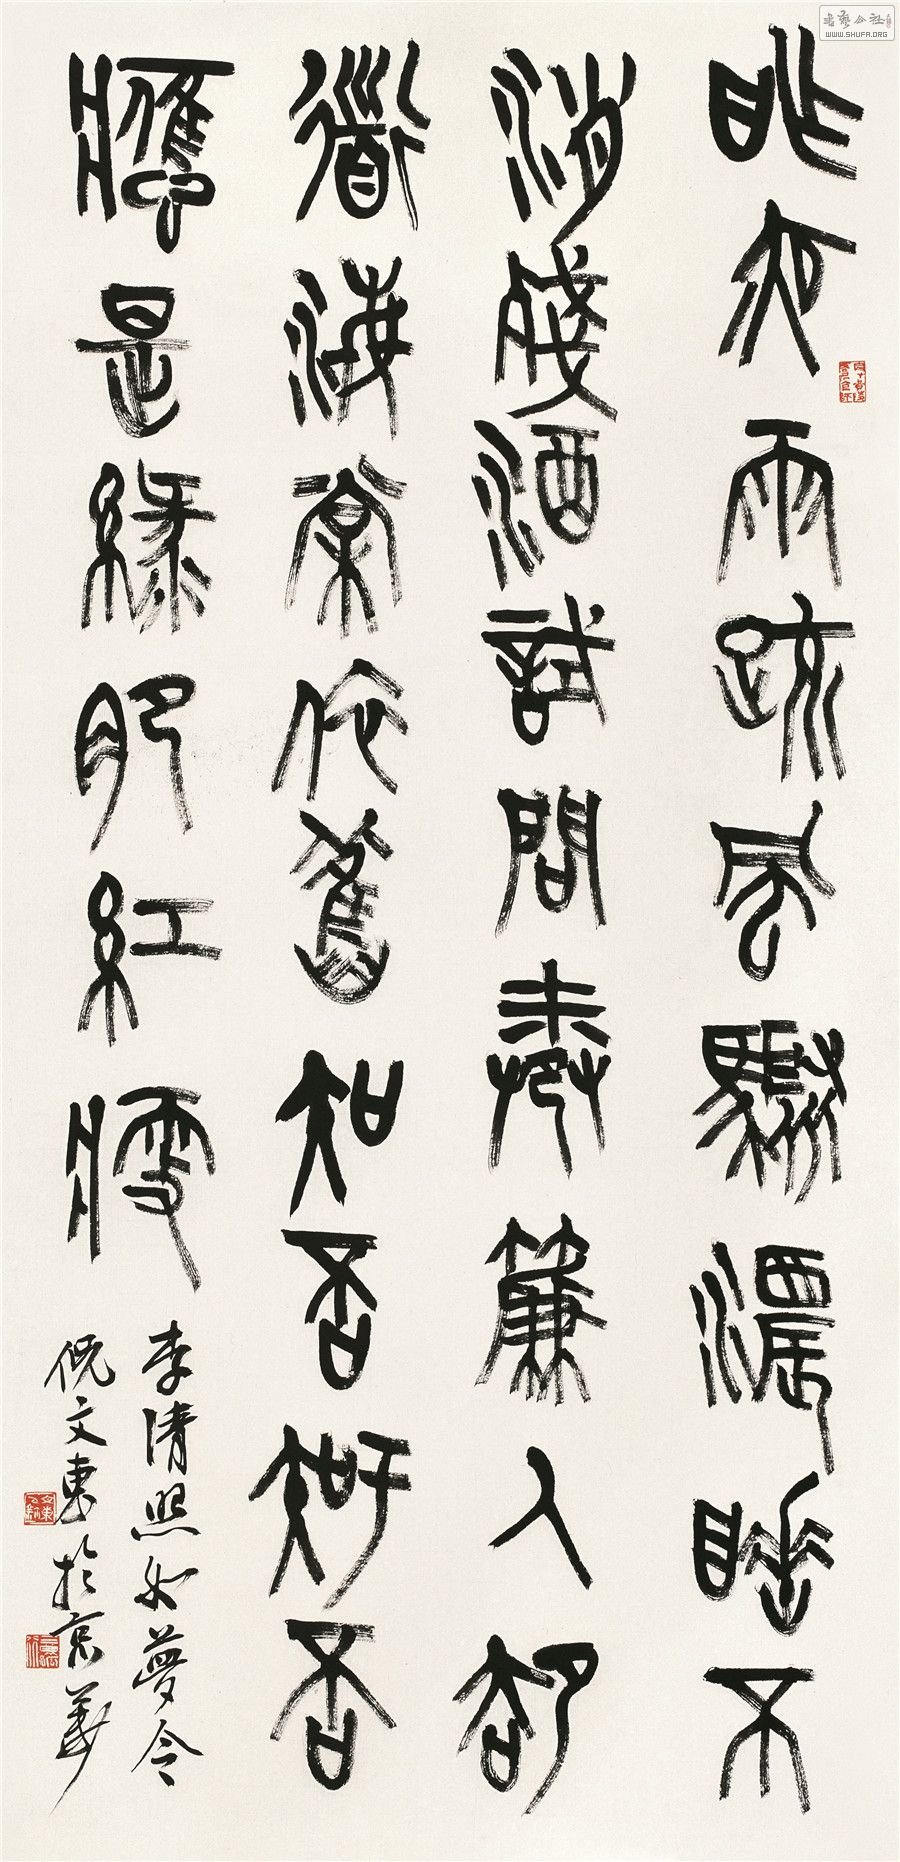 昨夜雨疏风驟濃睡不
消殘酒試問卷簾人却
道海棠依舊知否知否
應是綠肥紅瘦
李清照如夢令
倪文東於京華
書藝公社
WWW.SHUFA.ORG